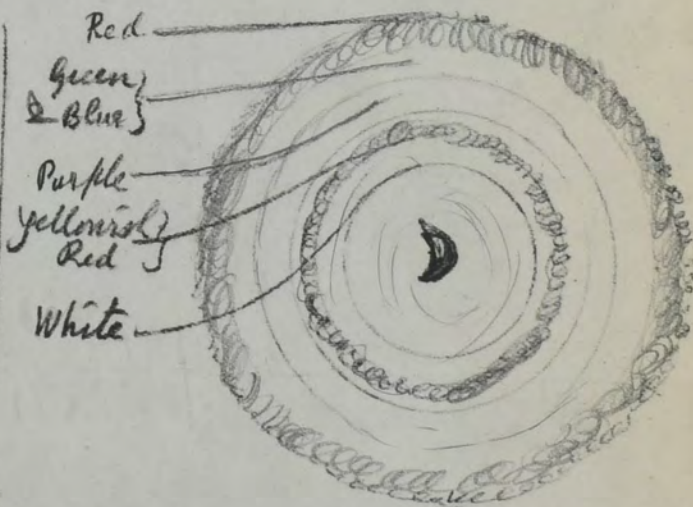 Red
Green }
& Blue }
Purple
Yellowish }
Red }
White